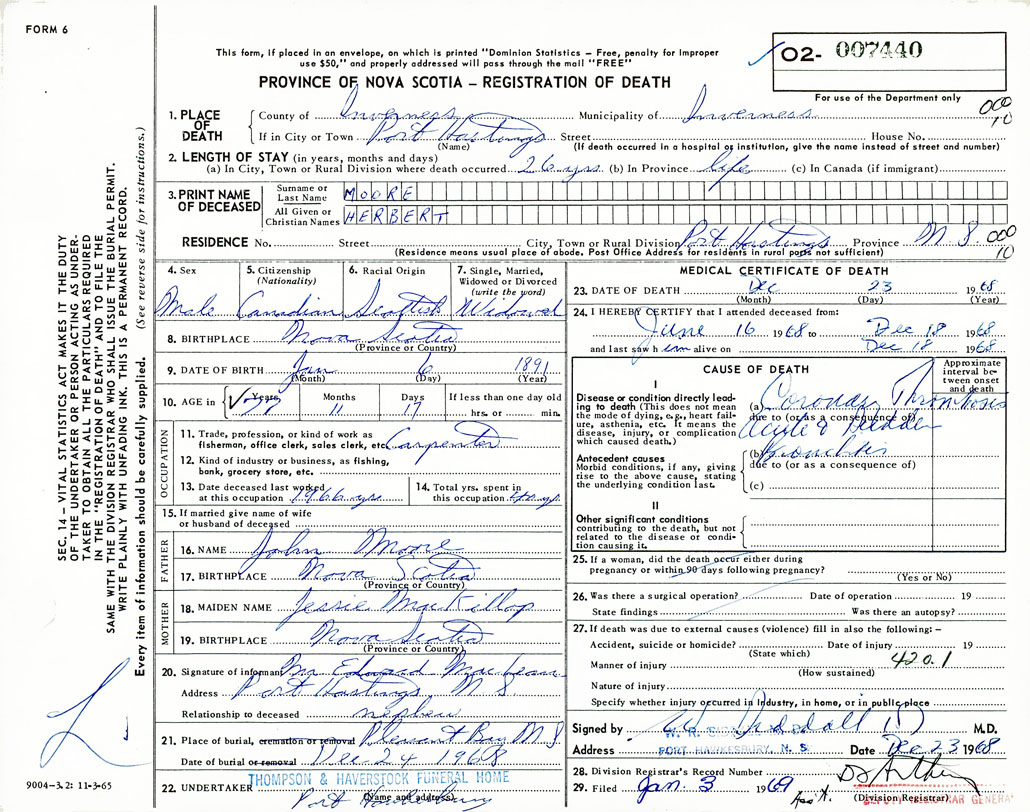 FORM 6
This form, if placed in an envelope, on which is printed "Dominion Statistics – Free, penalty for improper
use $50," and properly addressed will pass through the mail "FREE"
PROVINCE OF NOVA SCOTIA – REGISTRATION OF DEATH
02- 007440
For use of the Department only
000
10
1. PLACE OF DEATH
County of Inverness Municipality of Inverness
If in City or Town Port Hastings Street House No.
(Name) (If death occurred in a hospital or institution, give the name instead of street and number)
2. LENGTH OF STAY (in years, months and days)
(a) In City, Town or Rural Division where death occurred 26 yrs (b) In Province life (c) In Canada (if immigrant)
3. PRINT NAME OF DECEASED
Surname or Last Name MOORE
All Given or Christian Names HERBERT
RESIDENCE No. Street City, Town or Rural Division Port Hastings Province N.S. 000
(Residence means usual place of abode. Post Office Address for residents in rural parts not sufficient) 10
4. Sex
Male
5. Citizenship
(Nationality)
Canadian
6. Racial Origin
Scottish
7. Single, Married,
Widowed or Divorced
(write the word)
Widowed
8. BIRTHPLACE Nova Scotia
(Province or Country)
9. DATE OF BIRTH Jan 6 1891
(Month) (Day) (Year)
10. AGE in Years 77 Months 11 Days 17 If less than one day old
hrs. or min.
OCCUPATION
11. Trade, profession, or kind of work as
fisherman, office clerk, sales clerk, etc. Carpenter
12. Kind of industry or business, as fishing,
bank, grocery store, etc.
13. Date deceased last worked
at this occupation 1966 yrs
14. Total yrs. spent in
this occupation 40 yr
15. If married give name of wife
or husband of deceased
FATHER
16. NAME John Moore
17. BIRTHPLACE Nova Scotia
(Province or Country)
MOTHER
18. MAIDEN NAME Jessie MacKillop
19. BIRTHPLACE Nova Scotia
(Province or Country)
20. Signature of informant Mr Edward MacLean
Address Port Hastings N S
Relationship to deceased nephew
21. Place of burial, cremation or removal Pleasant Bay N S
Date of burial or removal Dec 24 1968
THOMPSON & HAVERSTOCK FUNERAL HOME
22. UNDERTAKER Port Hawkesbury
(Name and address)
MEDICAL CERTIFICATE OF DEATH
23. DATE OF DEATH Dec 23 1968
(Month) (Day) (Year)
24. I HEREBY CERTIFY that I attended deceased from:
June 16 1968 to Dec 18 1968
and last saw him alive on Dec 18 1968
CAUSE OF DEATH
Approximate interval between onset and death
I
Disease or condition directly leading to death (This does not mean the mode of dying, e.g., heart failure, asthenia, etc. It means the disease, injury, or complication which caused death.)
(a) Coronary Thrombosis
due to (or as a consequence of)
Acute & Sudden
Antecedent causes
Morbid conditions, if any, giving rise to the above cause, stating the underlying condition last.
(b) Bronchitis
due to (or as a consequence of)
(c)
II
Other significant conditions
contributing to the death, but not related to the disease or condition causing it.
25. If a woman, did the death occur either during
pregnancy or within 90 days following pregnancy?
(Yes or No)
26. Was there a surgical operation? Date of operation 19
State findings Was there an autopsy?
27. If death was due to external causes (violence) fill in also the following: –
Accident, suicide or homicide? Date of injury 19
(State which)
Manner of injury 420.1
(How sustained)
Nature of injury
Specify whether injury occurred in Industry, in home, or in public place
Signed by M.D.
Address PORT HAWKESBURY, N. S. Date Dec 23 1968
28. Division Registrar's Record Number
29. Filed Jan. 3 1969
(Division Registrar)
SEC. 14 – VITAL STATISTICS ACT MAKES IT THE DUTY
OF THE UNDERTAKER OR PERSON ACTING AS UNDERTAKER TO OBTAIN ALL THE PARTICULARS REQUIRED
IN THE "REGISTRATION OF DEATH" AND TO FILE THE
SAME WITH THE DIVISION REGISTRAR WHO SHALL ISSUE THE BURIAL PERMIT.
WRITE PLAINLY WITH UNFADING INK. THIS IS A PERMANENT RECORD.
Every item of information should be carefully supplied. (See reverse side for instructions.)
9004-3.2: 11-3-65